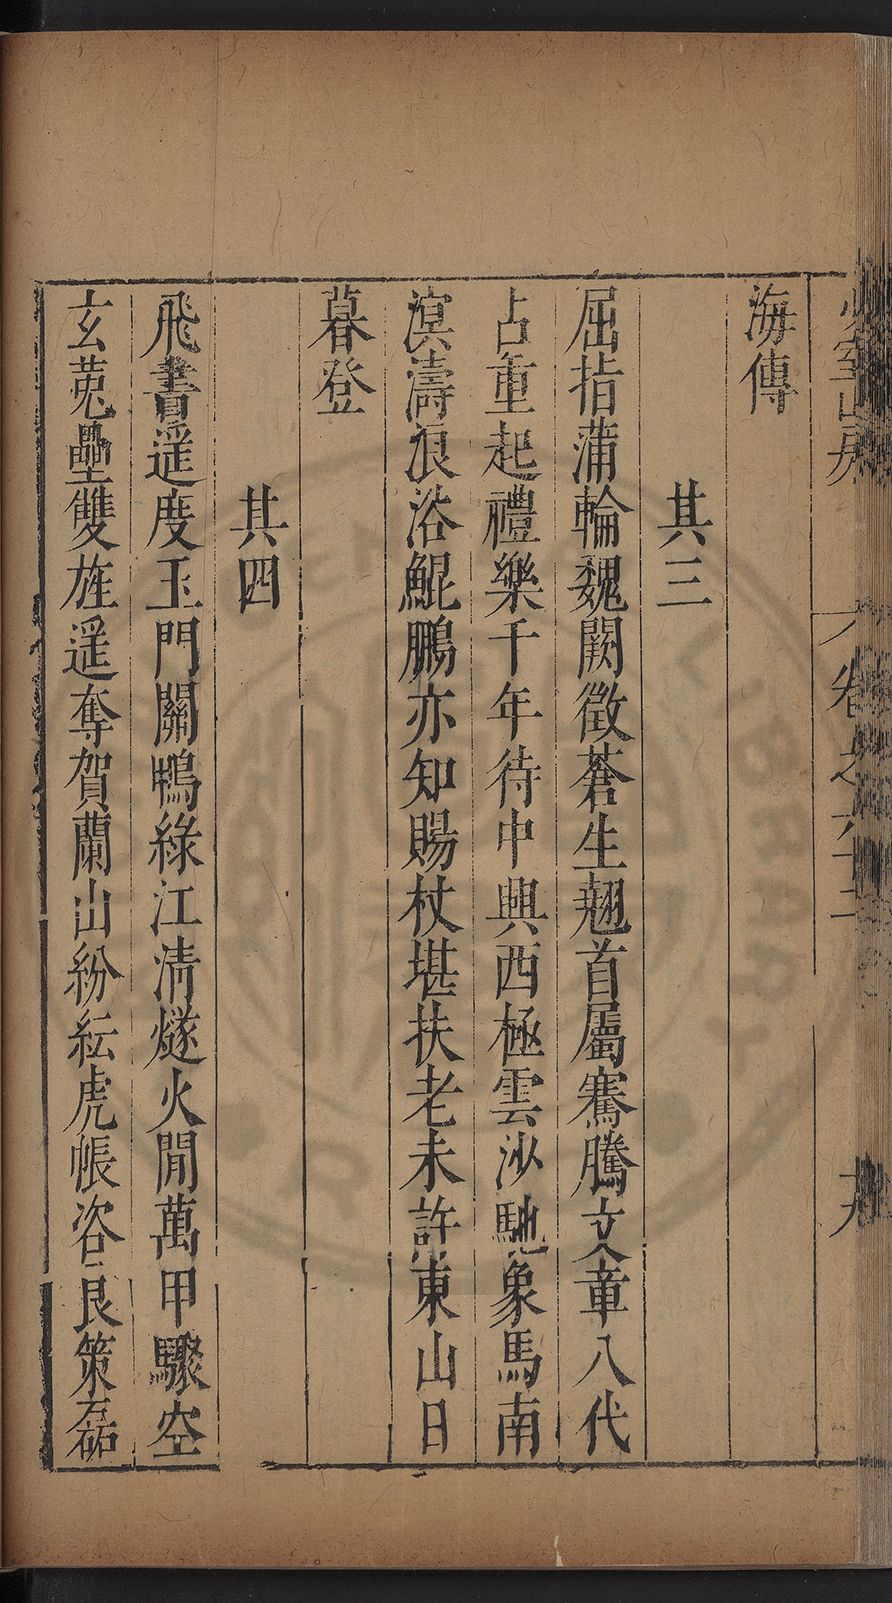 海傳
其三
屈指蒲輪魏闕徵蒼生翹首屬騫騰文章八代
占重起禮樂千年待中興西極雲沙馳象馬南
溟濤浪浴鯤鵬亦知賜杖堪扶老未許東山日
暮登
其四
飛書遥度玉門關鴨綠江清燧火閒萬甲驟空
玄菟壘雙旌遥奪賀蘭山紛紜虎帳咨良策磊